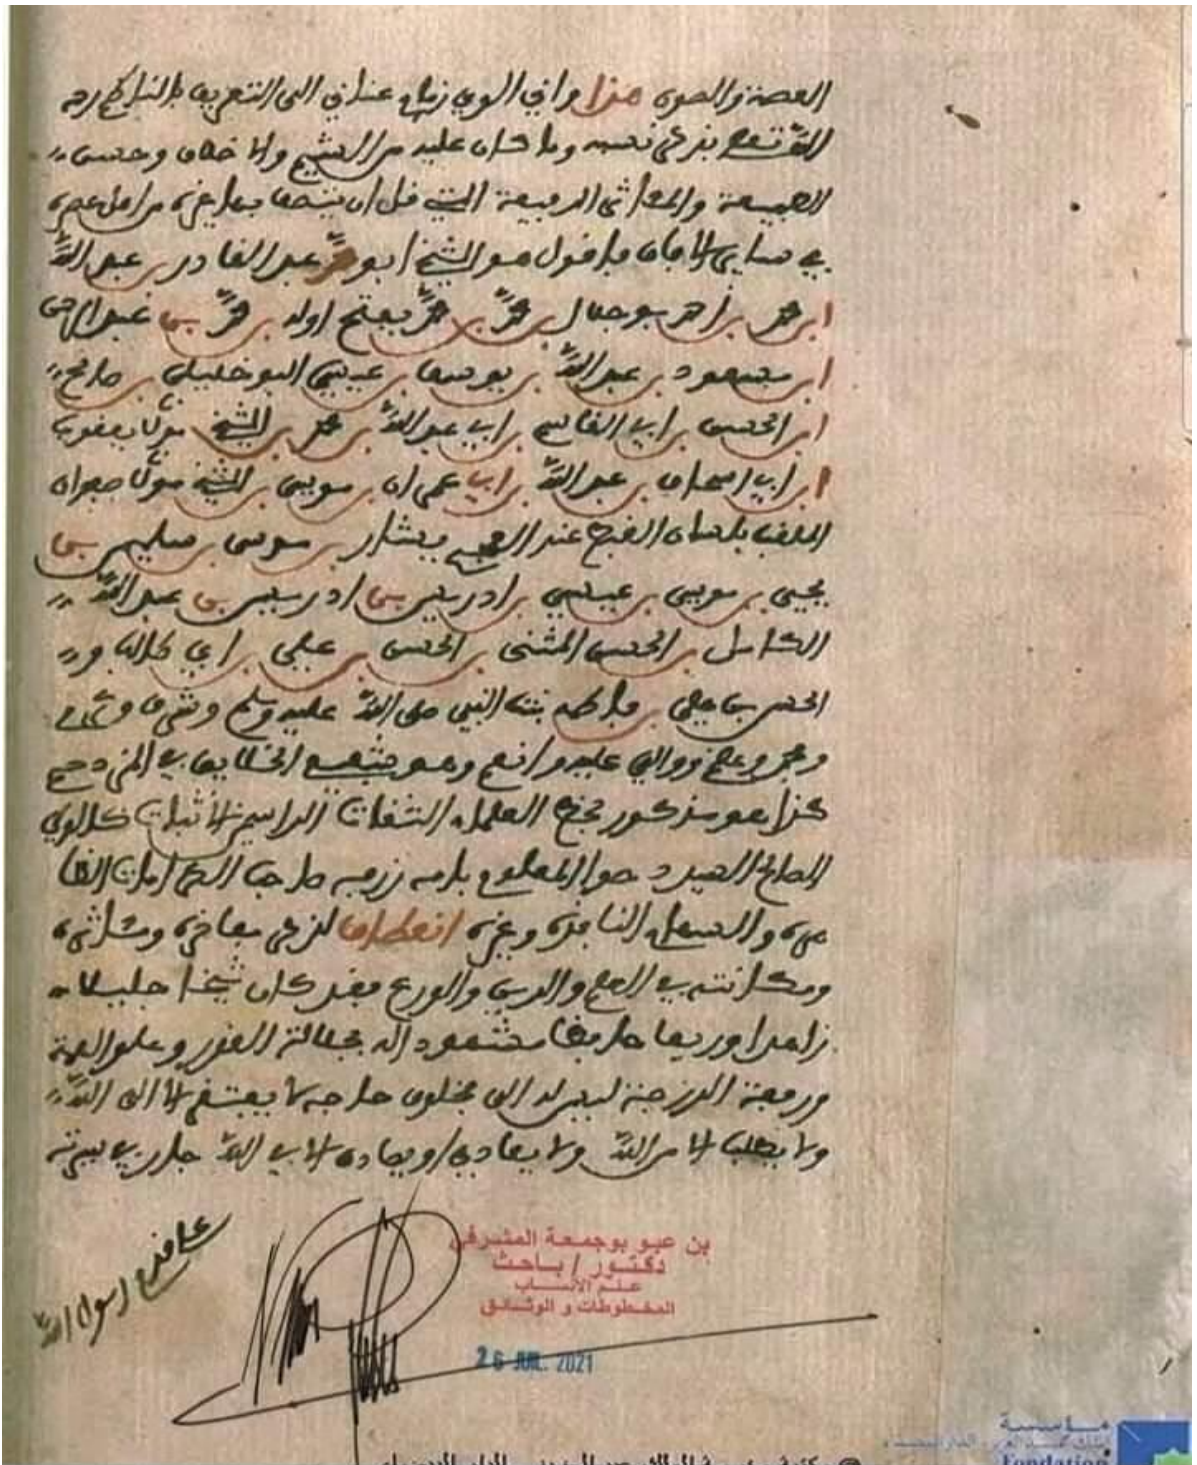 العصمة والصون هذا واني ألوي زمام عناني الى التعريف بالناظم رحمه
الله تعلى بذكر نسبه وما كان عليه من الشيم والاخلاق وحسن
والمآثر الرفيعة التي قل ان يتصف بها غيره من اهل عصره
في ساير الافاق فاقول هو الشيخ ابو محمد عبد القادر بن عبد الله
ابن محمد بن احمد بوجلال بن محمد بن محمد بفتح اوله بن محمد بن عبد الرحمن
ابن مسعود بن عبد الله بن يوسف بن عيسى البوخليلي بن صالح
ابن الحسن بن ابي القاسم بن ابي عبد الله بن محمد بن الشيخ مولا يعقوب
ابن ابي اسحاق بن عبد الله بن ابي عمران بن موسى بن الشيخ مولا صفوان
الملقب بلسان القبح عند بيشار بن موسى بن سليم بن
يحيى بن موسى بن عيسى بن ادريس بن ادريس بن عبد الله
الكامل بن الحسن المثنى بن الحسن بن علي بن ابي طالب و
الحسن بن علي بن فاطمة بنت النبي صلى الله عليه وسلم وشرف وكرم
ومجد وعظم ووالى عليه وانعم
كذا هو مذكور بخط العلماء الثقات الراسخين الاثبات كالولي
الصالح المقطوع بانه زمنه صاحب الكرامات
وغيره انعطاف لذكر مفاخره ومآثره
ومكانته في العلم والدين والورع فقد كان شيخا جليلا
زاهدا وريعا مشهود اله بجلالة القدر وعلو الهمة
ورفعة الدرجة ليس له الى مخلوق حاجة لا يفتقر الا الى الله
ولا يطلب الا من الله ولا يعادي او يصادق الا في الله
على قدم رسول الله
بن عبو بوجمعة المشرفي
دكتور / باحث
علم الأنساب
المخطوطات و الوثائق
26 JUIL. 2021
مؤسسة
Fondation